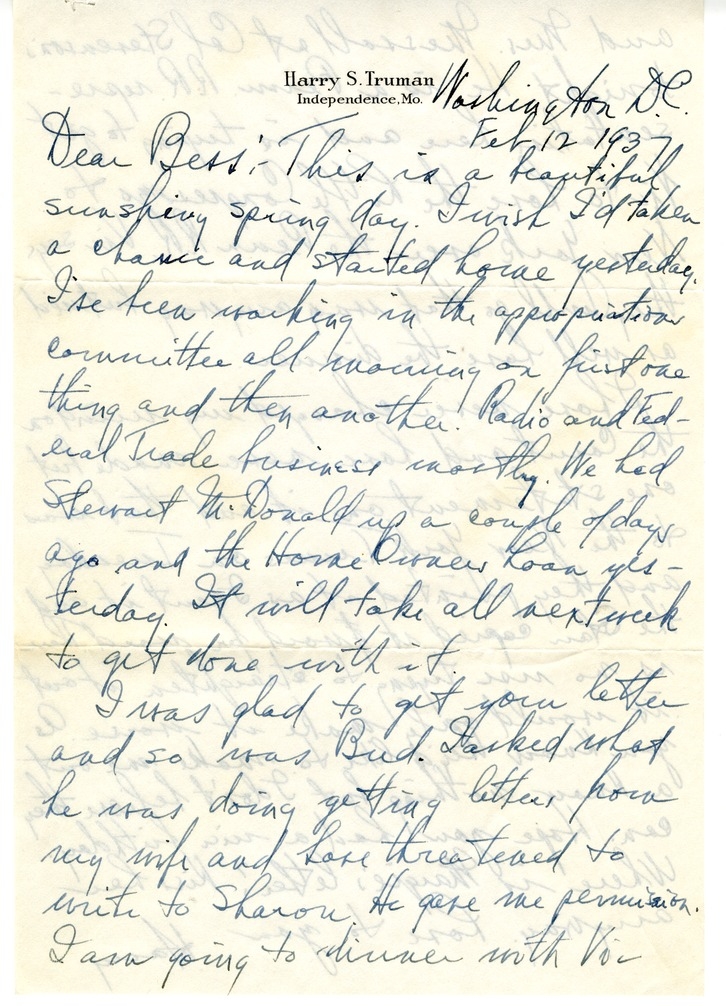 Harry S. Truman
Independence, Mo.
Washington D.C.
Feb. 12 1937
Dear Bess:- This is a beautiful
sunshiny spring day. I wish I'd taken
a chance and started home yesterday.
I've been working in the appropriations
committee all morning on first one
thing and then another. Radio and Fed-
eral Trade business mostly. We had
Stewart McDonald up a couple of days
ago and the Home Owners Loan yes-
terday. It will take all next week
to get done with it.
I was glad to get your letter
and so was Bud. I asked what
he was doing getting letters from
my wife and have threatened to
write to Sharon. He gave me permission.
I am going to dinner with Vic